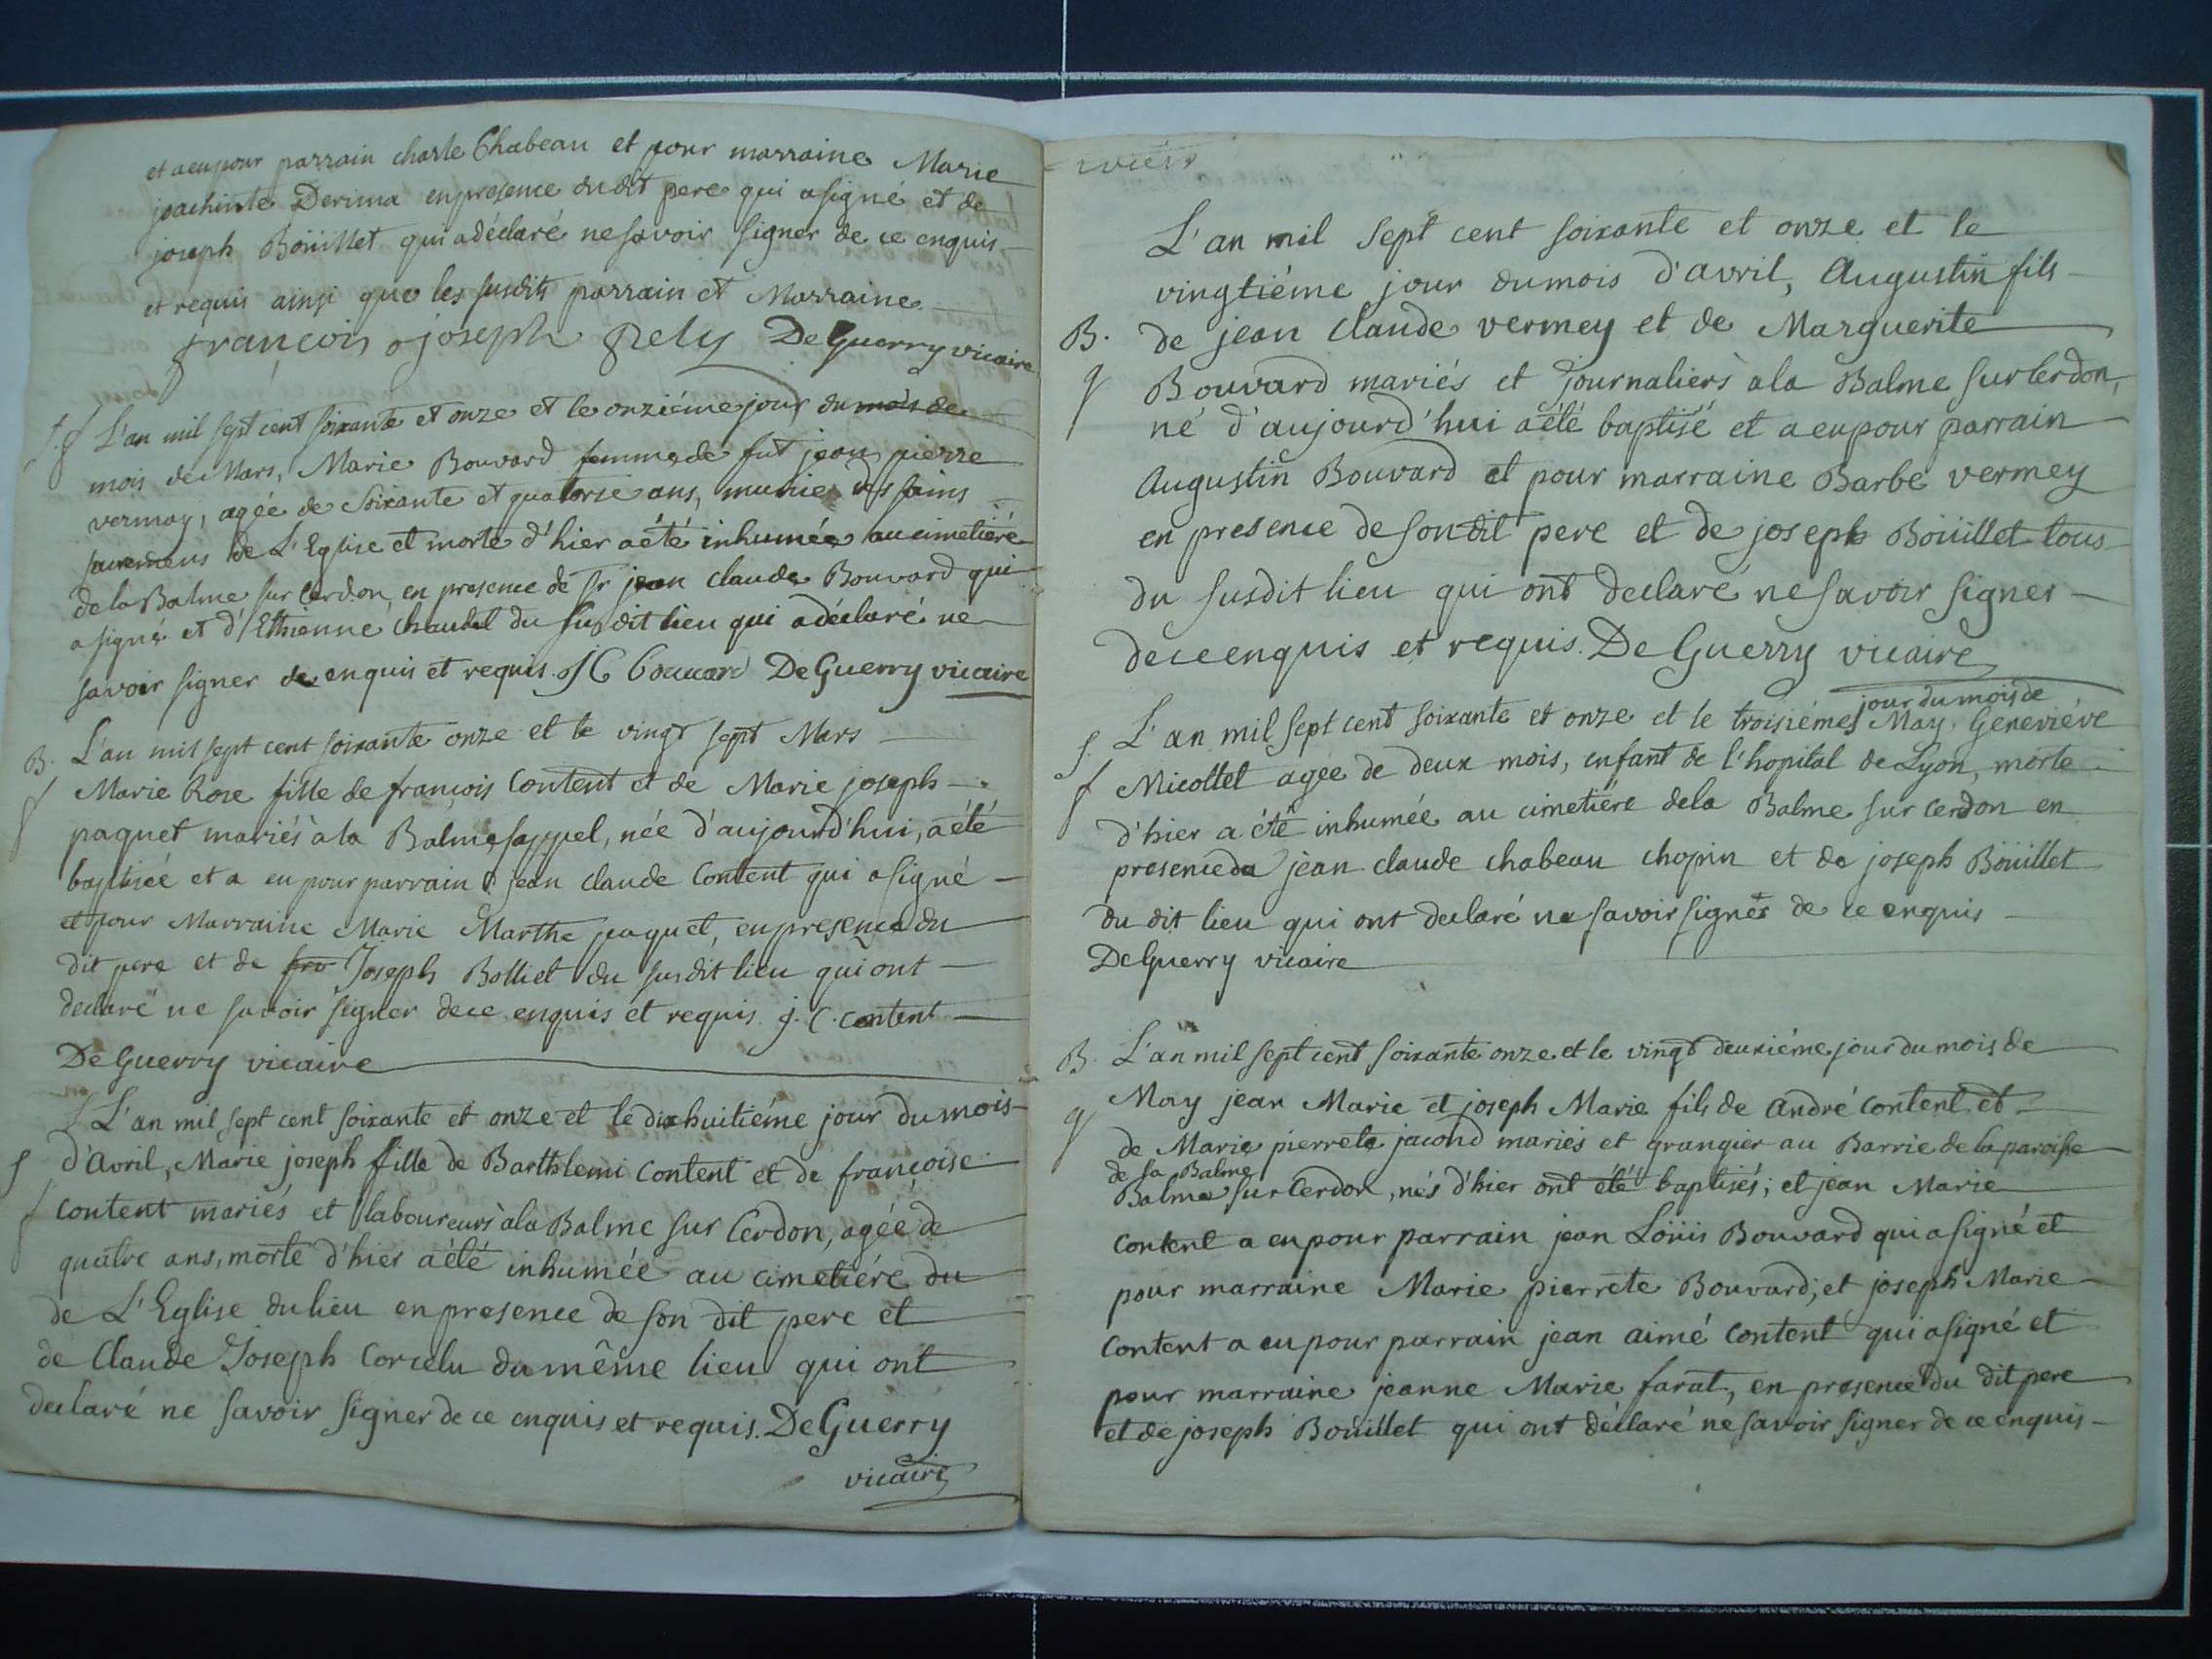 et a eu pour parrain charle Chabeau et pour marraine Marie
joachinte Derima en presence du dit pere qui a signé et de
joseph Boüillet qui a déclaré ne savoir signer de ce enquis
et requis ainsi que les susdits parrain et Marraine.
françois joseph Rely De Guerry vicaire
S. f L'an mil sept cent soixante et onze et le onziéme jour du mois de
mois de Mars, Marie Bouvard femme de fut jean pierre
vermay, agée de soixante et quatorze ans, munie des sains
sacremens de L'Eglise et morte d'hier a été inhumée au cimetiére
de la Balme sur Cerdon, en presence de Sr jean Claude Bouvard qui
a signé et d'Ethienne chaudel du susdit lieu qui a déclaré ne
savoir signer de enquis et requis. J C bouuard De Guerry vicaire
B. L'an mil sept cent soixante onze et le vingt sept Mars
f Marie Rose fille de françois Content et de Marie joseph
paquet mariés à la Balme sappel, née d'aujourd'hui, a été
baptisée et a eu pour parrain jean claude Content qui a signé
et pour Marraine Marie Marthe paquet, en presence du
dit pere et de Joseph Bolliet du susdit lieu qui ont
declaré ne savoir signer de ce enquis et requis. j. C. content
De Guerry vicaire
L'an mil sept cent soixante et onze et le dix huitiéme jour du mois
S d'Avril, Marie joseph fille de Barthlemi Content et de françoise
f Content mariés et laboureurs à la Balme sur Cerdon, agée de
quatre ans, morte d'hier a été inhumée au cimetiére du
de L'Eglise du lieu en presence de son dit pere et
de Claude Joseph Corcelu du même lieu qui ont
declaré ne savoir signer de ce enquis et requis. De Guerry
vicaire
L'an mil sept cent soixante et onze et le
vingtiéme jour du mois d'avril, Augustin fils
B. de jean Claude vermey et de Marguerite
g Bouvard mariés et journaliers à la Balme sur Cerdon,
né d'aujourd'hui a été baptisé et a eu pour parrain
Augustin Bouvard et pour marraine Barbe vermey
en presence de son dit pere et de joseph Boüillet tous
du susdit lieu qui ont declaré ne savoir signer
de ce enquis et requis. De Guerry vicaire
jour du mois de
S. L'an mil sept cent soixante et onze et le troisiéme May, Geneviéve
f Micollet agée de deux mois, enfant de l'hopital de Lyon, morte
d'hier a été inhumée au cimetiére de la Balme sur Cerdon en
presence de jean claude chabeau chopin et de joseph Boüillet
du dit lieu qui ont declaré ne savoir signer de ce enquis
De Guerry vicaire
B. L'an mil sept cent soixante onze et le vingt deuxiéme jour du mois de
g May jean Marie et joseph Marie fils de André Content et
de Marie pierrete jacond mariés et grangier au Barrie de la paroisse
de la Balme
Balme sur Cerdon, nés d'hier ont été baptisés; et jean Marie
Content a eu pour parrain jean Loüis Bouvard qui a signé et
pour marraine Marie pierrete Bouvard; et joseph Marie
Content a eu pour parrain jean aimé Content qui a signé et
pour marraine jeanne Marie farat, en presence du dit pere
et de joseph Boüillet qui ont déclaré ne savoir signer de ce enquis